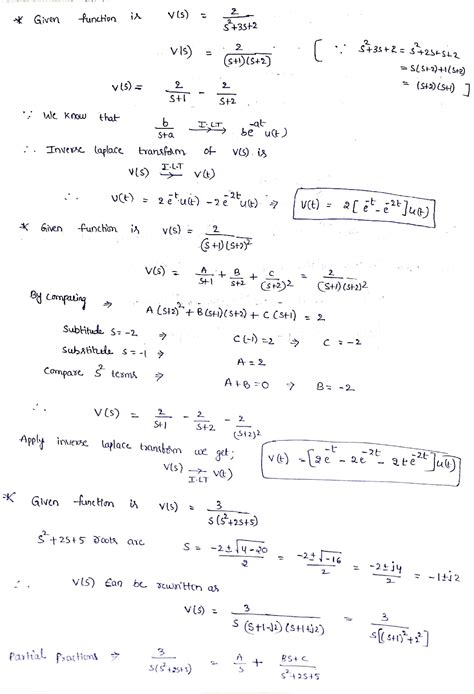 * Given function is V(s) = 2/(s²+3s+2)
V(s) = 2/((s+1)(s+2)) [ ∵ s²+3s+2 = s²+2s+s+2
= s(s+2)+1(s+2)
= (s+2)(s+1) ]
V(s) = 2/(s+1) - 2/(s+2)
∵ We know that b/(s+a) I.LT→ be^-at u(t)
∴ Inverse laplace transform of V(s) is
V(s) I.LT→ v(t)
∴ v(t) = 2e^-t u(t) - 2e^-2t u(t) ⇒ v(t) = 2[e^-t - e^-2t]u(t)
* Given function is V(s) = 2/((s+1)(s+2)²)
V(s) = A/(s+1) + B/(s+2) + C/(s+2)² = 2/((s+1)(s+2)²)
By comparing ⇒ A(s+2)² + B(s+1)(s+2) + C(s+1) = 2
Subtitude s=-2 ⇒ C(-1) = 2 ⇒ C = -2
Substitude s=-1 ⇒ A = 2
Compare s² terms ⇒ A+B=0 ⇒ B = -2
∴ V(s) = 2/(s+1) - 2/(s+2) - 2/(s+2)²
Apply inverse laplace transform we get;
V(s) →I.LT v(t) v(t) = [2e^-t - 2e^-2t - 2te^-2t]u(t)
* Given function is V(s) = 3/(s(s²+2s+5))
s²+2s+5 roots are s = (-2±√(4-20))/2 = (-2±√-16)/2 = (-2±j4)/2 = -1±j2
∴ V(s) can be rewritten as
V(s) = 3/(s(s+1-j2)(s+1+j2)) = 3/(s[(s+1)²+2²])
Partial fractions ⇒ 3/(s(s²+2s+5)) = A/s + (Bs+C)/(s²+2s+5)